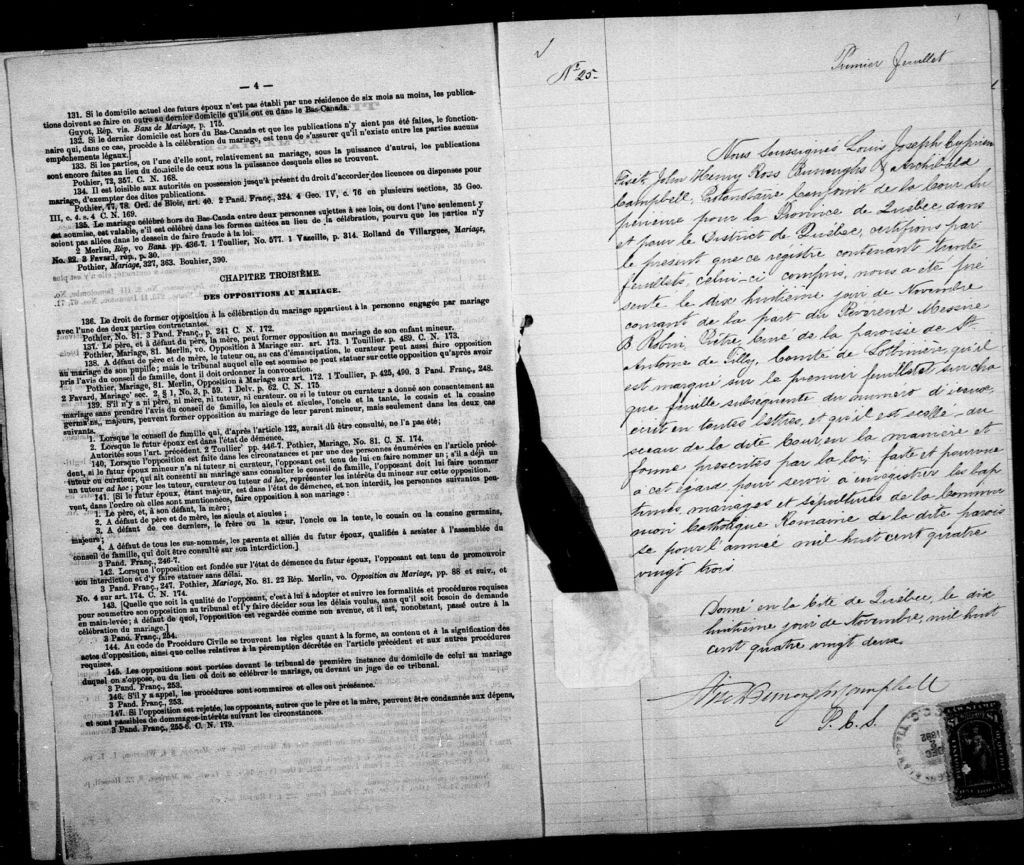 — 4 —
131. Si le domicile actuel des futurs époux n'est pas établi par une résidence de six mois au moins, les publica-
tions doivent se faire en outre au dernier domicile qu'ils ont eu dans le Bas-Canada.
Guyot, Rép. vis. Bans de Mariage, p. 175.
132. Si le dernier domicile est hors du Bas-Canada et que les publications n'y aient pas été faites, le fonction-
naire qui, dans ce cas, procède à la célébration du mariage, est tenu de s'assurer qu'il n'existe entre les parties aucuns
empêchements légaux.]
133. Si les parties, ou l'une d'elle sont, relativement au mariage, sous la puissance d'autrui, les publications
sont encore faites au lieu du domicile de ceux sous la puissance desquels elles se trouvent.
Pothier, 72, 357. C. N. 168.
134. Il est loisible aux autorités en possession jusqu'à présent du droit d'accorder des licences ou dispenses pour
mariage, d'exempter des dites publications.
Pothier, 77, 78. Ord. de Blois, art. 40. 2 Pand. Franç., 324. 4 Geo. IV, c. 76 en plusieurs sections, 35 Geo.
III, c. 4. s. 4 C. N. 169.
135. Le mariage célébré hors du Bas-Canda entre deux personnes sujettes à ses lois, ou dont l'une seulement y
est soumise, est valable, s'il est célébré dans les formes usitées au lieu de la célébration, pourvu que les parties n'y
soient pas allées dans le dessein de faire fraude à la loi.
2 Merlin, Rép, vo Bans. pp. 436-7. 1 Toullier, No. 577. 1 Vazeille, p. 314. Rolland de Villargues, Mariage,
No. 22. 3 Favard, rép., p. 30.
Pothier, Mariage, 327, 363. Rouhier, 390.
CHAPITRE TROISIÈME.
DES OPPOSITIONS AU MARIAGE.
136. Le droit de former opposition à la célébration du mariage appartient à la personne engagée par mariage
avec l'une des deux parties contractantes.
Pothier, No. 81. 3 Pand. Franç., p. 241 C. N. 172.
137. Le père, et à défaut du père, la mère, peut former opposition au mariage de son enfant mineur.
Pothier, Mariage, 81. Merlin, vo. Opposition à Mariage sur. art. 173. 1 Toullier p. 489. C. N. 173.
138. A défaut de père et de mère, le tuteur ou, au cas d'émancipation, le curateur peut aussi faire opposition
au mariage de son pupille; mais le tribunal auquel elle est soumise ne peut statuer sur cette opposition qu'après avoir
pris l'avis du conseil de famille, dont il doit ordonner la convocation.
Pothier, Mariage, 81. Merlin, Opposition à Mariage sur art. 172. 1 Toullier, p. 425, 490. 3 Pand. Franç., 248.
2 Favard, Mariage' sec. 2, § 1, No. 3, p. 59. 1 Delv. p. 62. C. N. 175.
139. S'il n'y a ni père, ni mère, ni tuteur, ni curateur, ou si le tuteur ou curateur a donné son consentement au
mariage sans prendre l'avis du conseil de famille, les aïeuls et aïeules, l'oncle et la tante, le cousin et la cousine
germains, majeurs, peuvent former opposition au mariage de leur parent mineur, mais seulement dans les deux cas
suivants.
1. Lorsque le conseil de famille qui, d'après l'article 122, aurait dû être consulté, ne l'a pas été;
2. Lorsque le futur époux est dans l'état de démence.
Autorités sous l'art. précédent. 2 Toullier pp. 446-7. Pothier, Mariage, No. 81. C. N. 174.
140. Lorsque l'opposition est faite dans les circonstances et par une des personnes énumérées en l'article précé-
dent, si le futur époux mineur n'a ni tuteur ni curateur, l'opposant est tenu de lui en faire nommer un; s'il a déjà un
tuteur ou curateur, qui ait consenti au mariage sans consulter le conseil de famille, l'opposant doit lui faire nommer
un tuteur ad hoc; pour les tuteur, curateur ou tuteur ad hoc, représenter les intérêts du mineur sur cette opposition.
141. [Si le futur époux, étant majeur, est dans l'état de démence, et non interdit, les personnes suivantes peu-
vent, dans l'ordre où elles sont mentionnées, faire opposition à son mariage :
1. Le père, et, à son défaut, la mère;
2. A défaut de père et de mère, les aïeuls et aïeules;
3. A défaut de ces derniers, le frère ou la sœur, l'oncle ou la tente, le cousin ou la cousine germains,
majeurs;
4. A défaut de tous les sus-nommés, les parents et alliés du futur époux, qualifiés à assister à l'assemblée du
conseil de famille, qui doit être consulté sur son interdiction.]
3 Pand. Franç., 246-7.
142. Lorsque l'opposition est fondée sur l'état de démence du futur époux, l'opposant est tenu de promouvoir
son interdiction et d'y faire statuer sans délai.
3 Pand. Franç., 247. Pothier, Mariage, No. 81. 22 Rép. Merlin, vo. Opposition au Mariage, pp. 88 et suiv., et
No. 4 sur art. 174. C. N. 174.
143. [Quelle que soit la qualité de l'opposant, c'est à lui à adopter et suivre les formalités et procédures requises
pour soumettre son opposition au tribunal et l'y faire décider sous les délais voulus, sans qu'il soit besoin de demande
en main-levée; à défaut de quoi, l'opposition est regardée comme non avenue, et il est, nonobstant, passé outre à la
célébration du mariage.]
3 Pand. Franç., 254.
144. Au code de Procédure Civile se trouvent les règles quant à la forme, au contenu et à la signification des
actes d'opposition, ainsi que celles relatives à la péremption décrétée en l'article précédent et aux autres procédures
requises.
145. Les oppositions sont portées devant le tribunal de première instance du domicile de celui au mariage
duquel on s'oppose, ou du lieu où doit se célébrer le mariage, ou devant un juge de ce tribunal.
3 Pand. Franç., 253.
146. S'il y a appel, les procédures sont sommaires et elles ont préséance.
3 Pand. Franç., 253.
147. Si l'opposition est rejetée, les opposants, autres que le père et la mère, peuvent être condamnés aux dépens,
et sont passibles de dommages-intérêts suivant les circonstances.
3 Pand. Franç., 255-6. C. N. 179.
No. 25-
Premier feuillet
Nous soussignés Louis Joseph Cyprien
Fiset, John Henry Ross Burroughs & Archibald
Campbell, Protonotaire Conjoint de la Cour Su
périeure pour la Province de Québec dans
et pour le District de Québec, certifions par
le present que ce registre contenant trente
feuillets, celui-ci compris, nous a été pré
senté le dix huitième jour de Novembre
courant de la part du Révérend Messire
B Robin, Prêtre, Curé de la paroisse de St.
Antoine de Tilly, Comté de Lotbinière, qu'il
est marqué sur le premier feuillet et sur cha
que feuille subséquente du numero d'iceux
écrit en toutes lettres, et qu'il est scellé du
sceau de la dite Cour, en la manière et
forme prescrites par la loi, faite et pourvue
à cet égard pour servir à enregistrer les bap
têmes, mariages et sépultures de la Commu
nion Catholique Romaine de la dite parois
se pour l'année mil huit cent quatre
vingt trois
Donné en la Cité de Québec, le dix
huitième jour de Novembre, mil huit
cent quatre vingt deux.
Fiset Burroughs Campbell
P. C. S.
DEC
1882